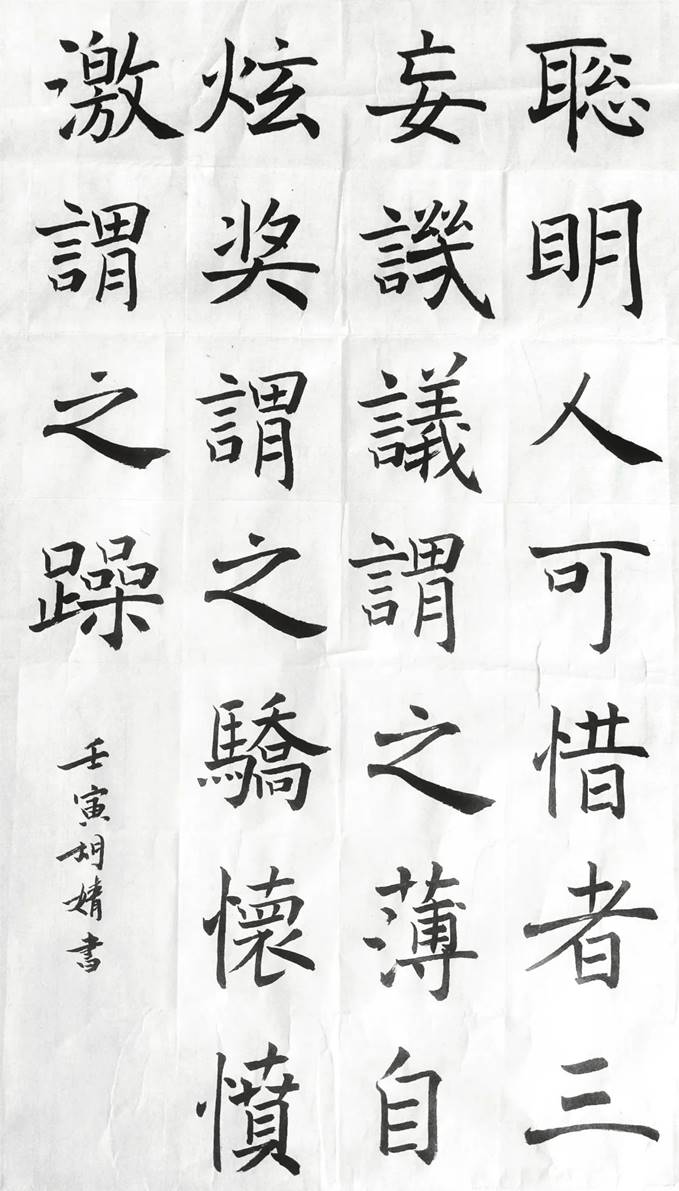 聡明人可惜者三
妄譏議謂之薄自
炫奖謂之驕懷憤
激謂之躁
壬寅胡婧書